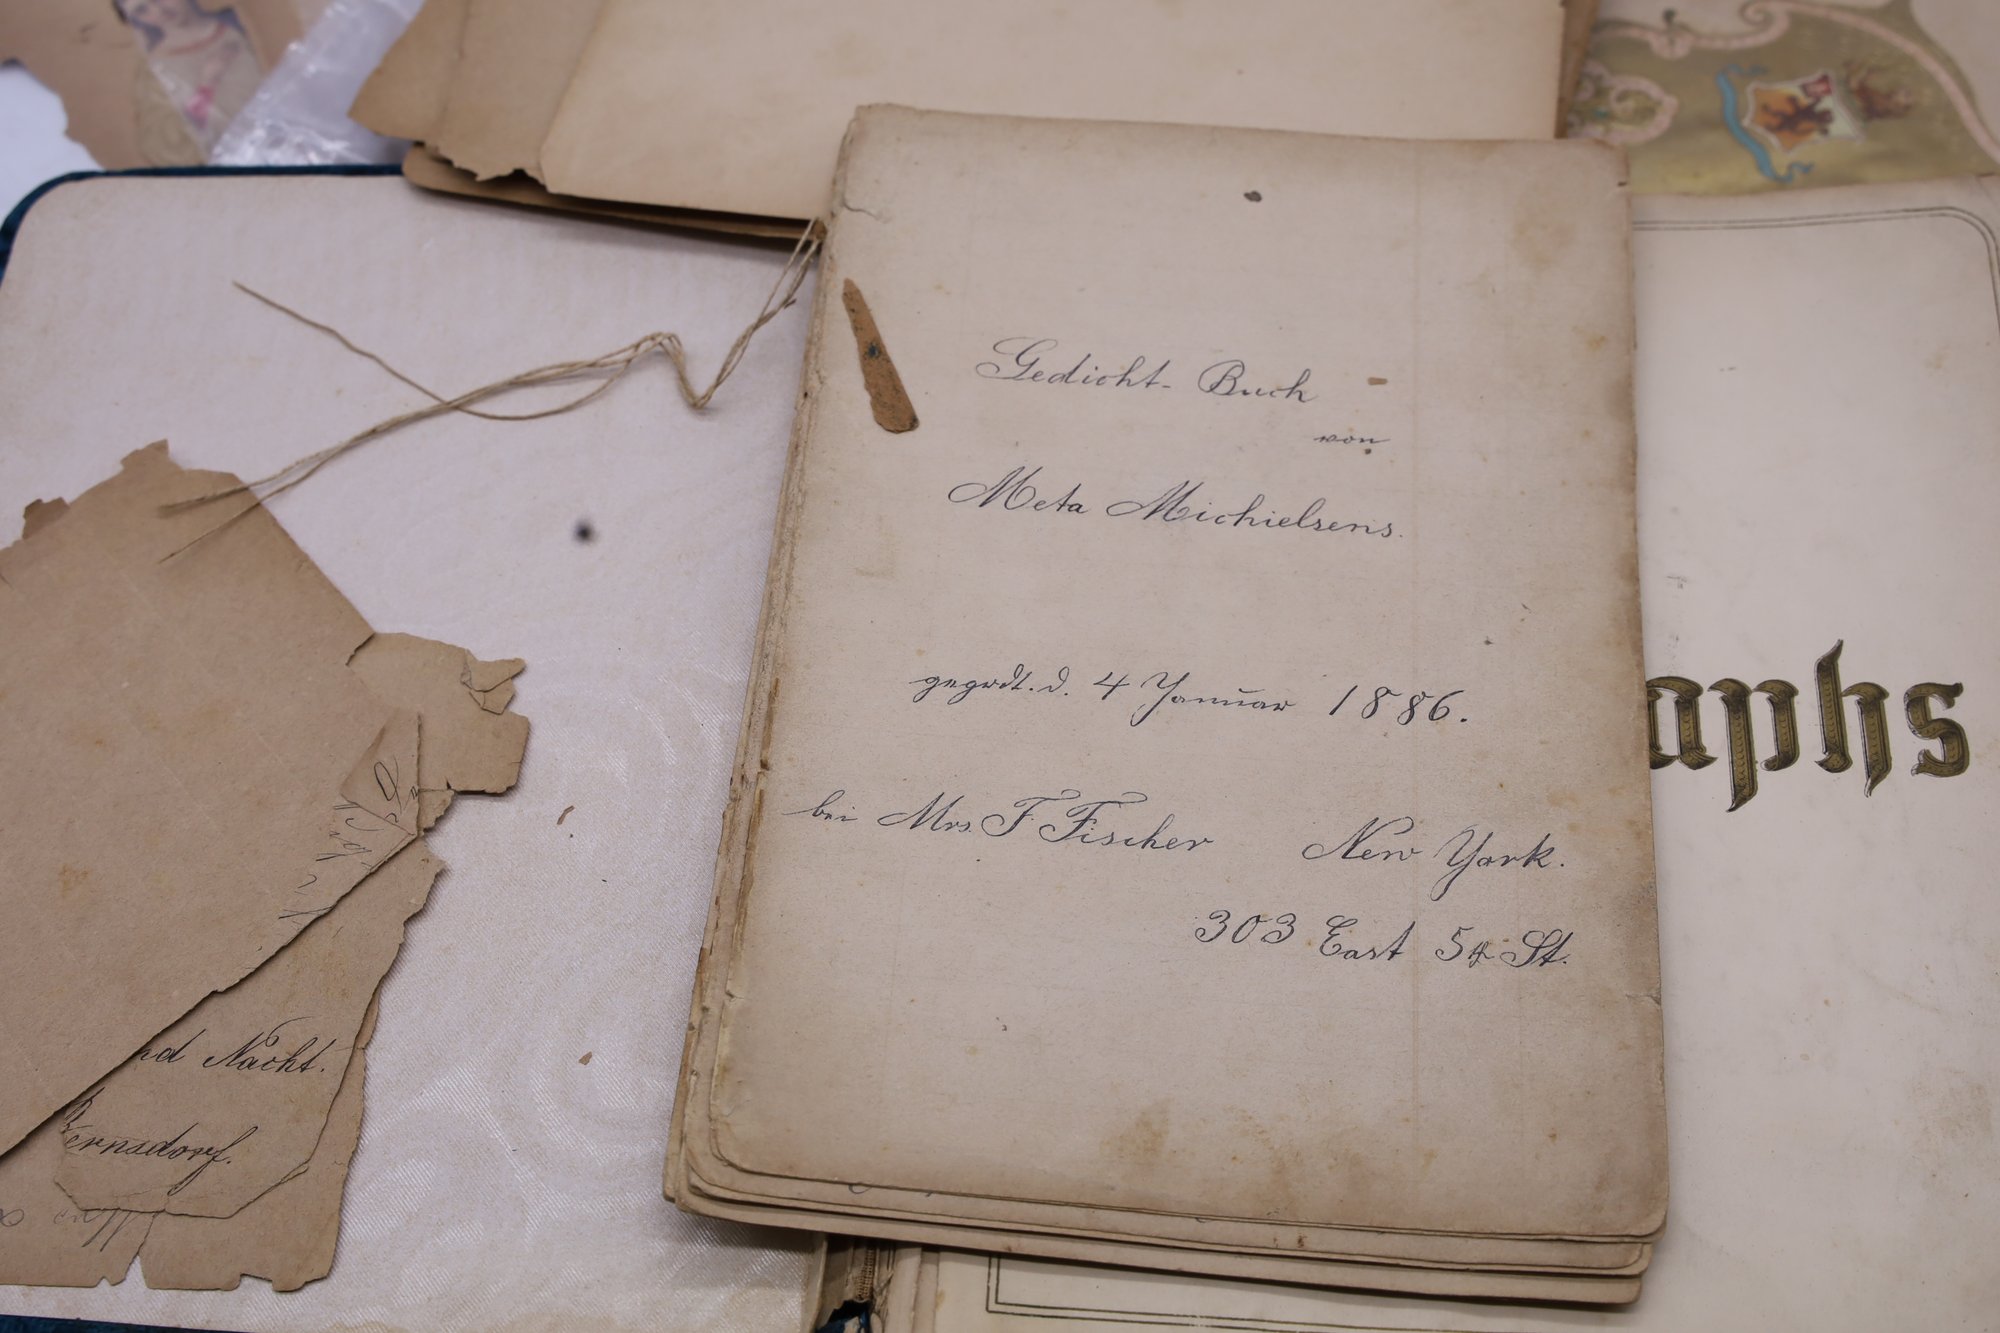 Gedicht-Buch
von
Meta Michielsens.
gegrdt. d. 4 Januar 1886.
bei Mrs. F. Fischer New York.
303 East 54 St.
aphs
nd Nacht.
Bernsdorf.